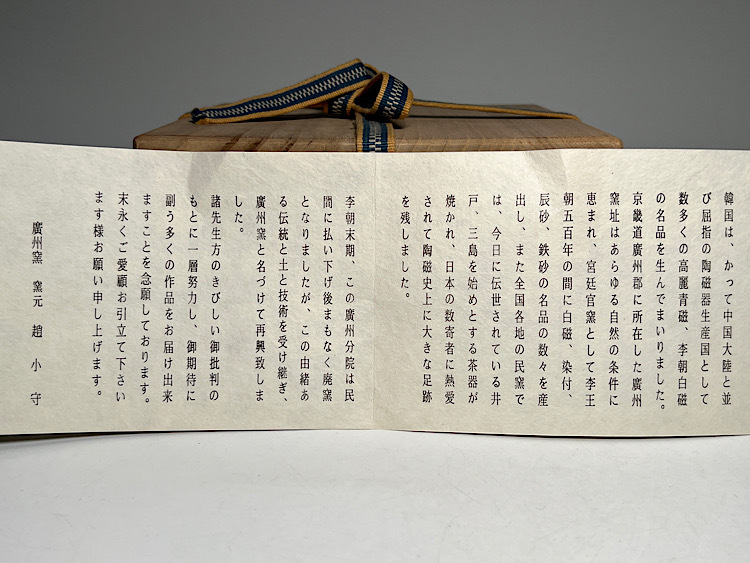 韓国は、かって中国大陸と並
び屈指の陶磁器生産国として
数多くの高麗青磁、李朝白磁
の名品を生んでまいりました。
京畿道廣州郡に所在した廣州
窯址はあらゆる自然の条件に
恵まれ、宮廷官窯として李王
朝五百年の間に白磁、染付、
辰砂、鉄砂の名品の数々を産
出し、また全国各地の民窯で
は、今日に伝世されている井
戸、三島を始めとする茶器が
焼かれ、日本の数寄者に熱愛
されて陶磁史上に大きな足跡
を残しました。
李朝末期、この廣州分院は民
間に払い下げ後まもなく廃窯
となりましたが、この由緒あ
る伝統と土と技術を受け継ぎ、
廣州窯と名づけて再興致しま
した。
諸先生方のきびしい御批判の
もとに一層努力し、御期待に
副う多くの作品をお届け出来
ますことを念願しております。
末永くご愛顧お引立て下さい
ます様お願い申し上げます。
廣州窯 窯元 趙 小 守